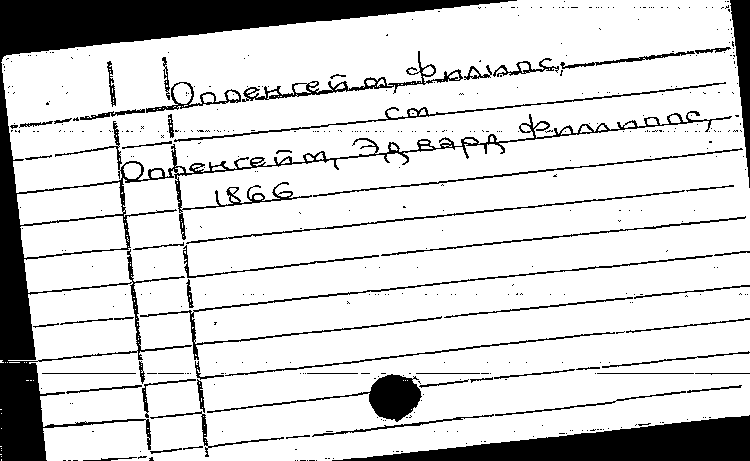 Оппенгейм, Филипс,
см.
Оппенгейм, Эдвард Филлипс,
1866